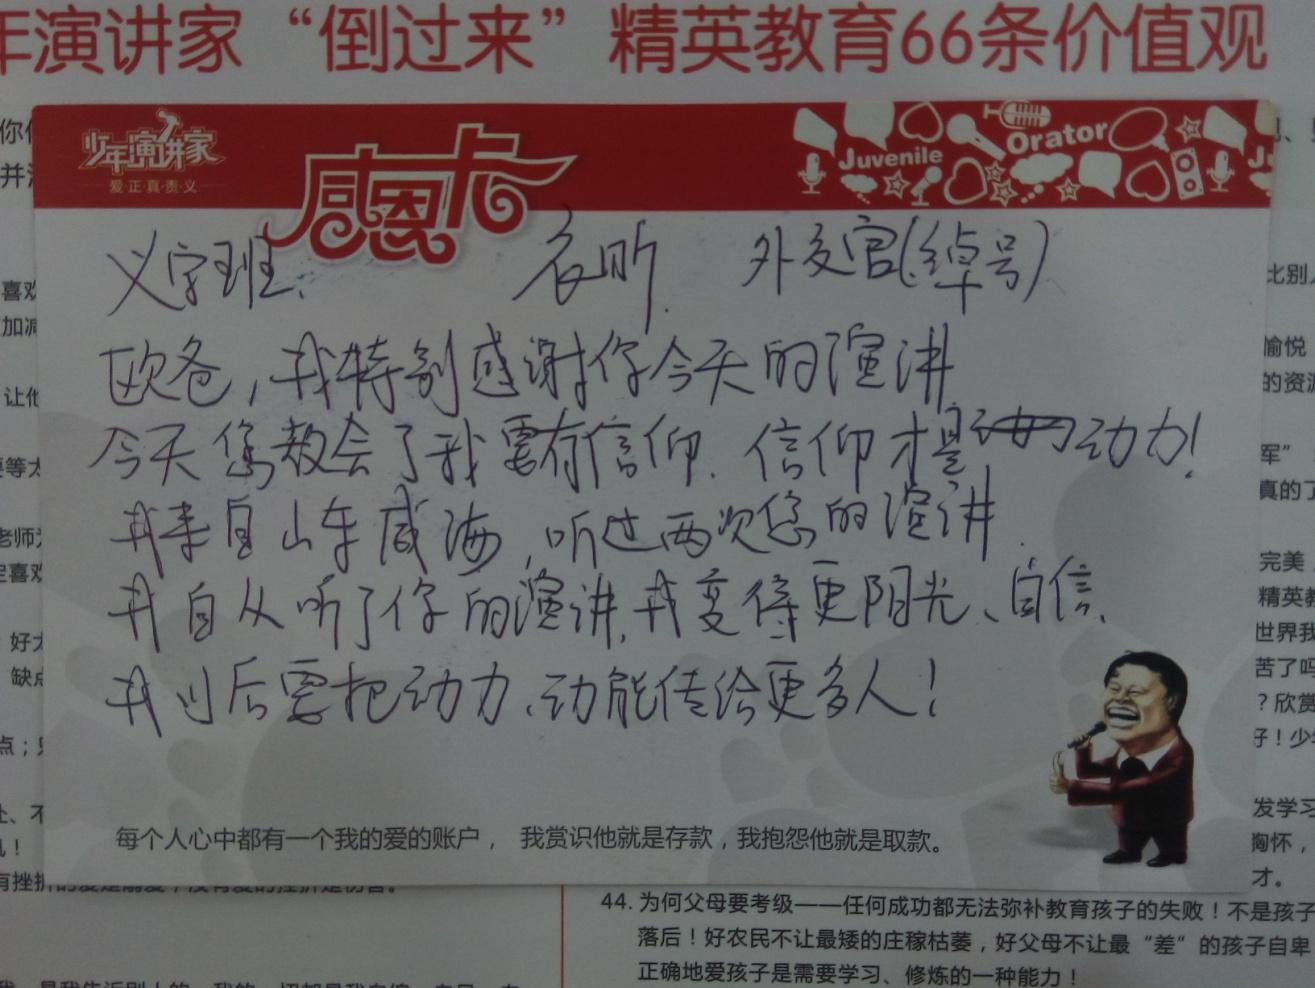 年演讲家“倒过来”精英教育66条价值观
少年演讲家
爱·正·真·责·义
感恩卡
Juvenile
Orator
义字班. 衣昕 外交官(绰号)
欧爸,我特别感谢你今天的演讲
今天您教会了我要有信仰.信仰才是动力!
我来自山东威海,听过两次您的演讲.
我自从听了你的演讲,我变得更阳光、自信、
我以后要把动力、动能传给更多人!
每个人心中都有一个我的爱的账户, 我赏识他就是存款,我抱怨他就是取款。
44. 为何父母要考级——任何成功都无法弥补教育孩子的失败!不是孩子
落后!好农民不让最矮的庄稼枯萎,好父母不让最“差”的孩子自卑
正确地爱孩子是需要学习、修炼的一种能力!